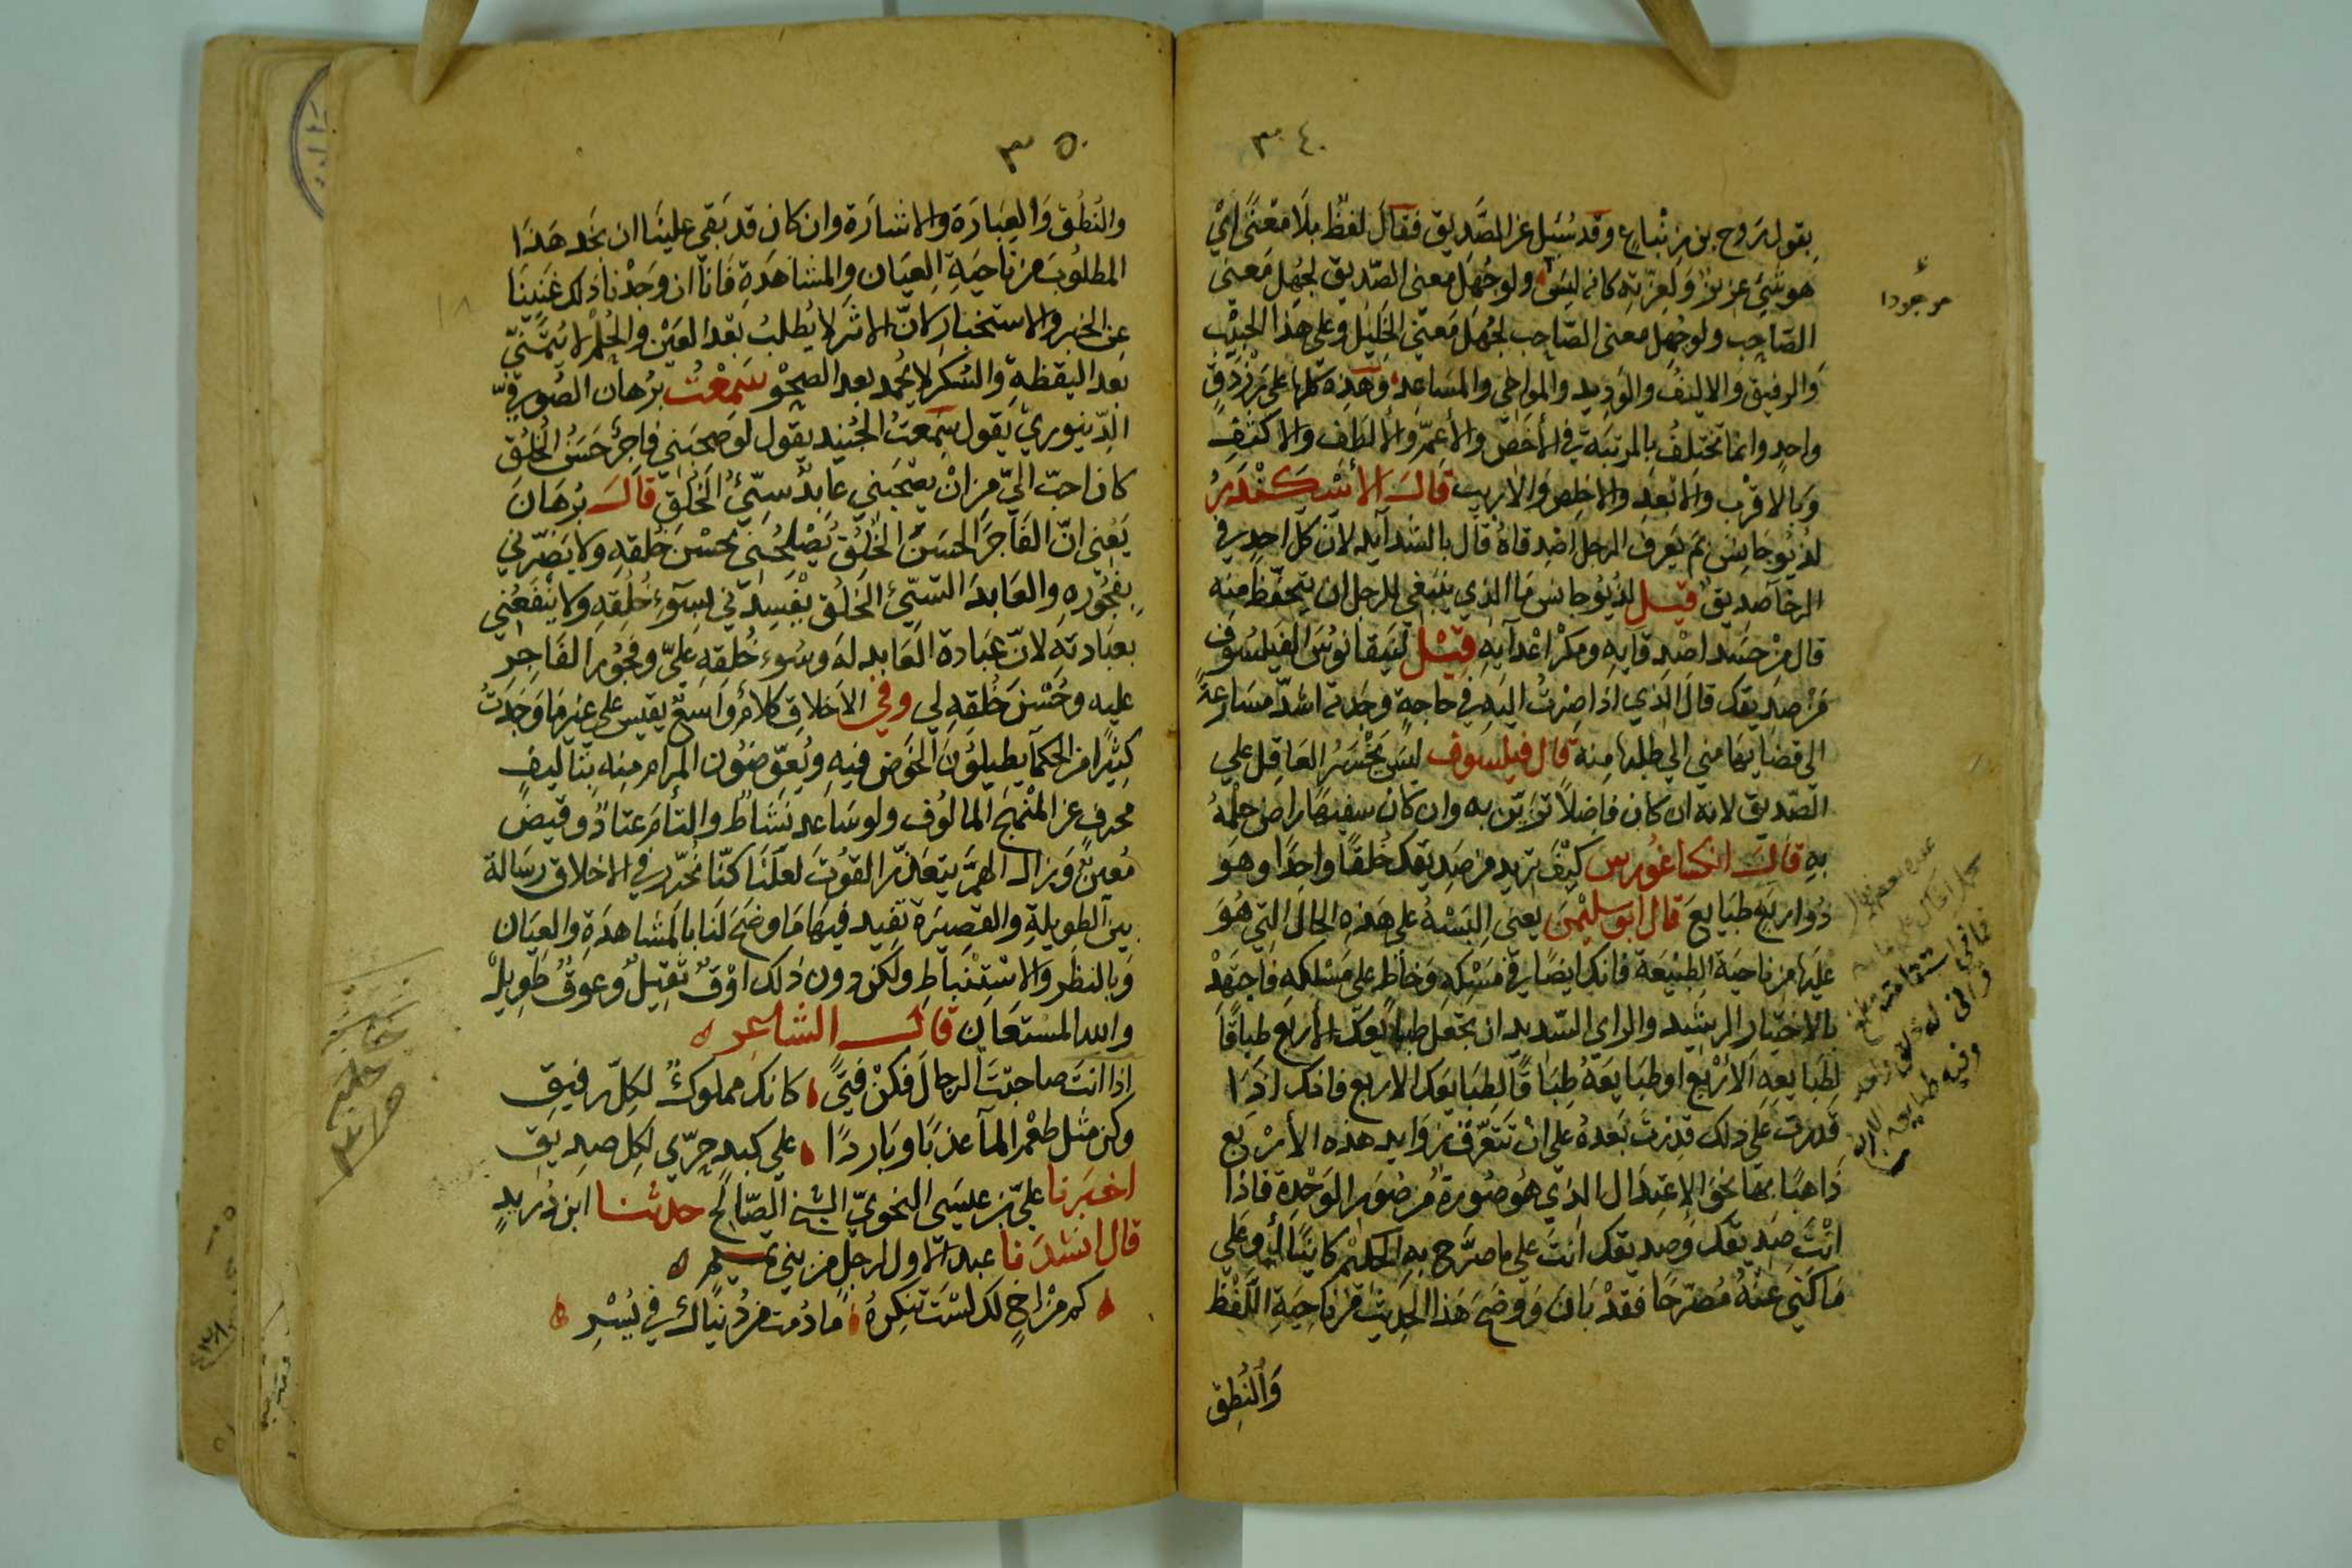 ٣٠٤
بقول روح بن زنباع وقد سئل عن الصديق فقال لفظ بلا معنى اي
هو شيء عزيز ولعزته كانه ليس ولو جهل معنى الصديق لجهل معنى
موجودا
الصاحب ولو جهل معنى الصاحب لجهل معنى الخليل وعلى هذا الحبيب
والرفيق والاليف والوديد والمواخي والمساعد وهذه كلها على رزدق
واحد وانما تختلف بالمرتبة في الأخص والأعم والألطف والاكثف
وبالاقرب والابعد والاخلص والاريب قال الأسكندر
لذيوجانس بم يعرف الرجل اصدقاه قال بالشدايد لان كل احد في
الرخا صديق قيل لذيوجانس ما الذي ينبغي للرجل ان يتحفظ منه
قال من حسد اصدقايه ومكر اعدايه قيل لثيفانوس الفيلسوف
من صديقك قال الذي اذا صرت اليه في حاجة وجدته اشد مسارعة
الى قضايها مني الى طلبها منه قال فيلسوف ليس يخسر العاقل على
الصديق لانه ان كان فاضلا تزين به وان كان سفيها راض حلمه
به قال انكساغورس كيف تريد من صديقك خلقا واحدا وهو
ذو اربع طبايع قال ابو سليمن يعني البسه على هذه الحال التي هو
عليها من ناحية الطبيعة فانك ايضا في مسكه وخاطر على مسلكه فاجتهد
بالاختيار الرشيد والراي السديد ان تجعل طبايعك الأربع طباقا
لطبايعه الأربع او طبايعه طباقا لطبايعك الاربع فانك اذا
قدرت على ذلك قدرت بعده على ان تتعرف زوايد هذه الأربع
ذاهبا بها نحو الاعتدال الذي هو صورة من صور الوحدة فاذا
انت صديقك وصديقك انت على ما صرح به الحكيم كاتبا لك وعلى
ما كنى عنه مصرحا فقد بان ووضح هذا الحديث من ناحية اللفظ
والنطق
٣٠٥
والنطق والعبارة والاشارة وان كان قد بقي علينا ان نجد هذا
المطلوب من ناحية العيان والمشاهدة فانا ان وجدنا ذلك غنينا
عن الخبر والاستخبار كان الاثر لا يطلب بعد العين والحلم لا يتمنى
بعد اليقظة والسكر لا يحمد بعد الصحو سمعت برهان الصوفي
الدينوري يقول سمعت الجنيد يقول لو صحبني فاجر حسن الخلق
كان احب الي من ان يصحبني عابد سيئ الخلق قال برهان
يعني ان الفاجر الحسن الخلق يصلحني بحسن خلقه ولا يضرني
بفجوره والعابد السيئ الخلق يفسدني بسوء خلقه ولا ينفعني
بعبادته لان عبادة العابد له وسوء خلقه علي وفجور الفاجر
عليه وحسن خلقه لي وفي الاخلاق كلام واسع نفيس على غير ما وجدت
كثيرا من الحكما يطيلون الخوض فيه ويعوضون المرام منه بتاليف
محرف عن المنهج المالوف ولو ساعد نشاط والتأم عتاد وقيض
معين وزال الهم بتعذر القوت لعلنا كنا نحرر في الاخلاق رسالة
بين الطويلة والقصيرة نفيد فيها ما وضح لنا بالمشاهدة والعيان
وبالنظر والاستنباط ولكن دون ذلك اوق ثقيل وعوق طويل
والله المستعان قال الشاعر
اذا انت صاحبت الرجال فكن فتى كانك مملوك لكل رفيق
وكن مثل طعم المآ عذبا وباردا على كبد حرى لكل صديق
اخبرنا علي بن عيسى النحوي الشيخ الصالح حدثنا ابن دريد
قال انشدنا عبد الاول لرجل من بني تميم
كم من اخ لك لست تنكره ما دمت من دنياك في يسر